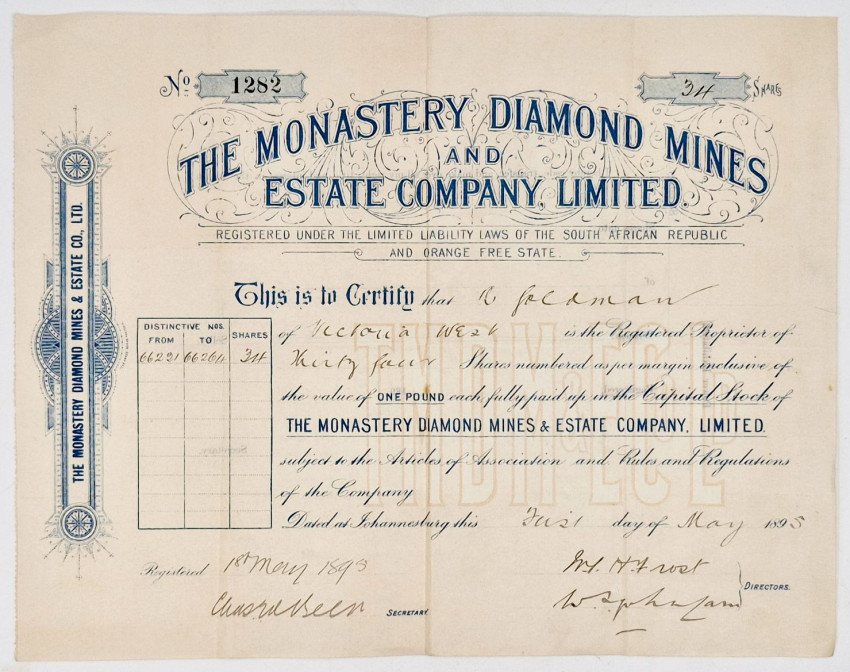 No 1282
34 Shares
THE MONASTERY DIAMOND MINES
AND
ESTATE COMPANY, LIMITED.
REGISTERED UNDER THE LIMITED LIABILITY LAWS OF THE SOUTH AFRICAN REPUBLIC
AND ORANGE FREE STATE.
THE MONASTERY DIAMOND MINES & ESTATE CO., LTD.
This is to Certify that R Goldman
of Victoria West is the Registered Proprietor of
Thirty four Shares numbered as per margin inclusive of
the value of ONE POUND each, fully paid up in the Capital Stock of
THE MONASTERY DIAMOND MINES & ESTATE COMPANY, LIMITED.
subject to the Articles of Association and Rules and Regulations
of the Company
Dated at Johannesburg this First day of May 1893
DISTINCTIVE NOS. SHARES
FROM TO
66231 66264 34
Registered 1st May 1893
SECRETARY.
H. Frost
DIRECTORS.